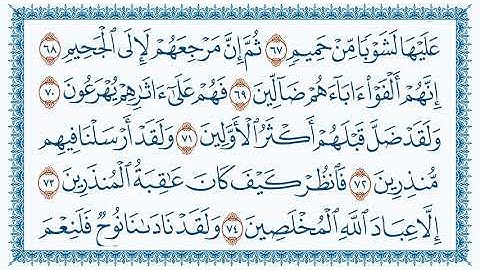 عَلَيْهَا لَشَوْبًا مِّنْ حَمِيمٍ ٦٧ ثُمَّ إِنَّ مَرْجِعَهُمْ لَإِلَى الْجَحِيمِ ٦٨
إِنَّهُمْ أَلْفَوْا۟ ءَابَآءَهُمْ ضَآلِّينَ ٦٩ فَهُمْ عَلَىٰٓ ءَاثَٰرِهِمْ يُهْرَعُونَ ٧٠
وَلَقَدْ ضَلَّ قَبْلَهُمْ أَكْثَرُ الْأَوَّلِينَ ٧١ وَلَقَدْ أَرْسَلْنَا فِيهِم
مُّنذِرِينَ ٧٢ فَٱنظُرْ كَيْفَ كَانَ عَٰقِبَةُ الْمُنذَرِينَ ٧٣
إِلَّا عِبَادَ اللَّهِ الْمُخْلَصِينَ ٧٤ وَلَقَدْ نَادَىٰنَا نُوحٌ فَلَنِعْمَ